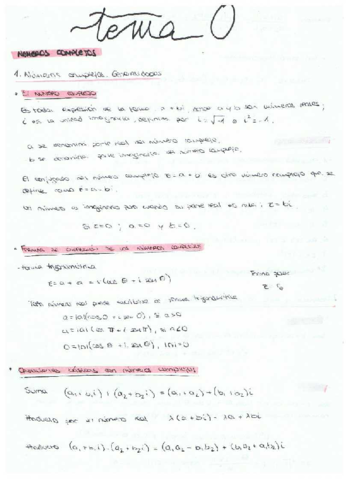 tema 0
NÚMEROS COMPLEJOS
1. Números complejos. Generalidades
• El número complejo
Es toda expresión de la forma z = a + bi donde a y b son números reales;
i es la unidad imaginaria, definida por i = √-1 o i² = -1.
a se denomina parte real del número complejo.
b se denomina parte imaginaria del número complejo.
El conjugado del número complejo z = a + bi es otro número complejo que se
define como z̄ = a - bi.
Un número es imaginario puro cuando su parte real es nula: z = bi
Si z = 0; a = 0 y b = 0.
• Formas de expresión de los números complejos
- forma trigonométrica
z = r(cos θ + i sen θ)
Todo número real puede escribirse en forma trigonométrica
a = |a|(cos 0 + i sen 0), si a > 0
a = |a|(cos π + i sen π), si a < 0
0 = |0|(cos θ + i sen θ),
• Operaciones básicas con números complejos
Suma (a₁ + b₁i) + (a₂ + b₂i) = (a₁ + a₂) + (b₁ + b₂)i
Producto por un número real λ(a + bi) = λa + λbi
Producto (a₁ + b₁i)·(a₂ + b₂i) = (a₁a₂ - b₁b₂) + (a₁b₂ + a₂b₁)i